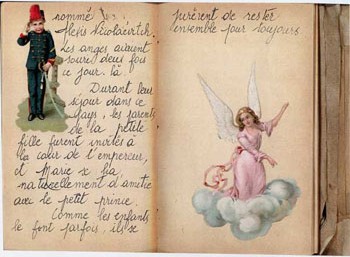 nommé
Alexis Nicolaïevitch.
Les anges avaient
souri deux fois
ce jour là
Durant leur
séjour dans ce
pays, les parents
de la petite
fille furent invités à
la cour de l'empereur,
et Marie se lia
naturellement d'amitié
avec le petit prince.
Comme les enfants
le font parfois, ils se
jurèrent de rester
ensemble pour toujours